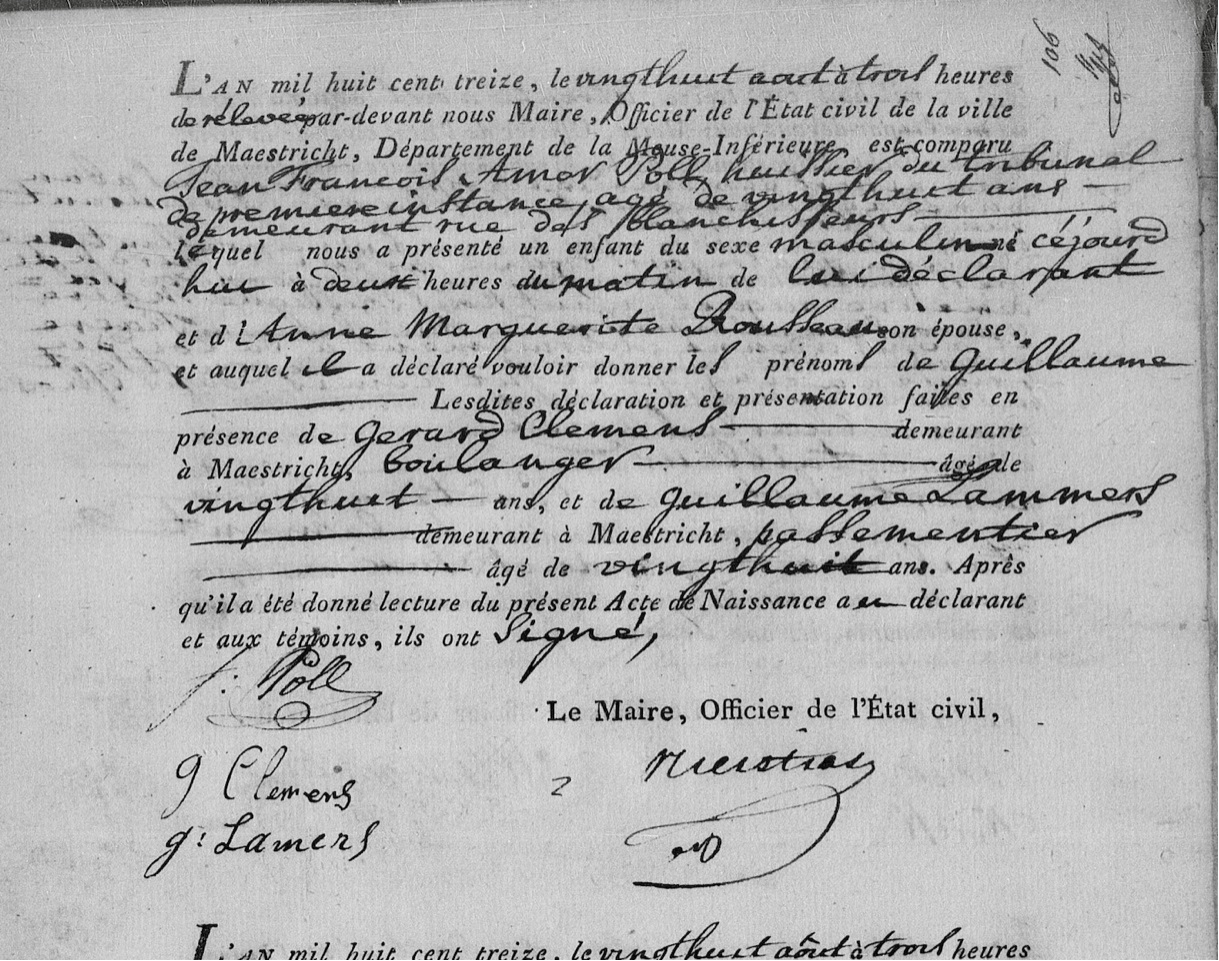 106
L'AN mil huit cent treize, le vingthuit aout à trois heures
de rélevée par-devant nous Maire, Officier de l'État civil de la ville
de Maestricht, Département de la Meuse-Inférieure, est comparu
Jean François Amor Pöll, huissier du tribunal
de premiere instance, agé de vingthuit ans —
demeurant rue des Blanchisseurs —
Lequel nous a présenté un enfant du sexe masculin né céjourd
hui à deux heures du matin de lui déclarant
et d'Anne Marguerite Rousseau son épouse,
et auquel il a déclaré vouloir donner les prénoms de Guillaume
— Lesdites déclaration et présentation faites en
présence de Gerard Clemens — demeurant
à Maestricht, boulanger — âgé de
vingthuit — ans, et de Guillaume Lammers
— demeurant à Maestricht, passementier
— âgé de vingthuit ans. Après
qu'il a été donné lecture du présent Acte de Naissance au déclarant
et aux témoins, ils ont signé,
f: Pöll
Le Maire, Officier de l'État civil,
g Clemens
g: Lamers
L'AN mil huit cent treize, le vingthuit aôut à trois heures